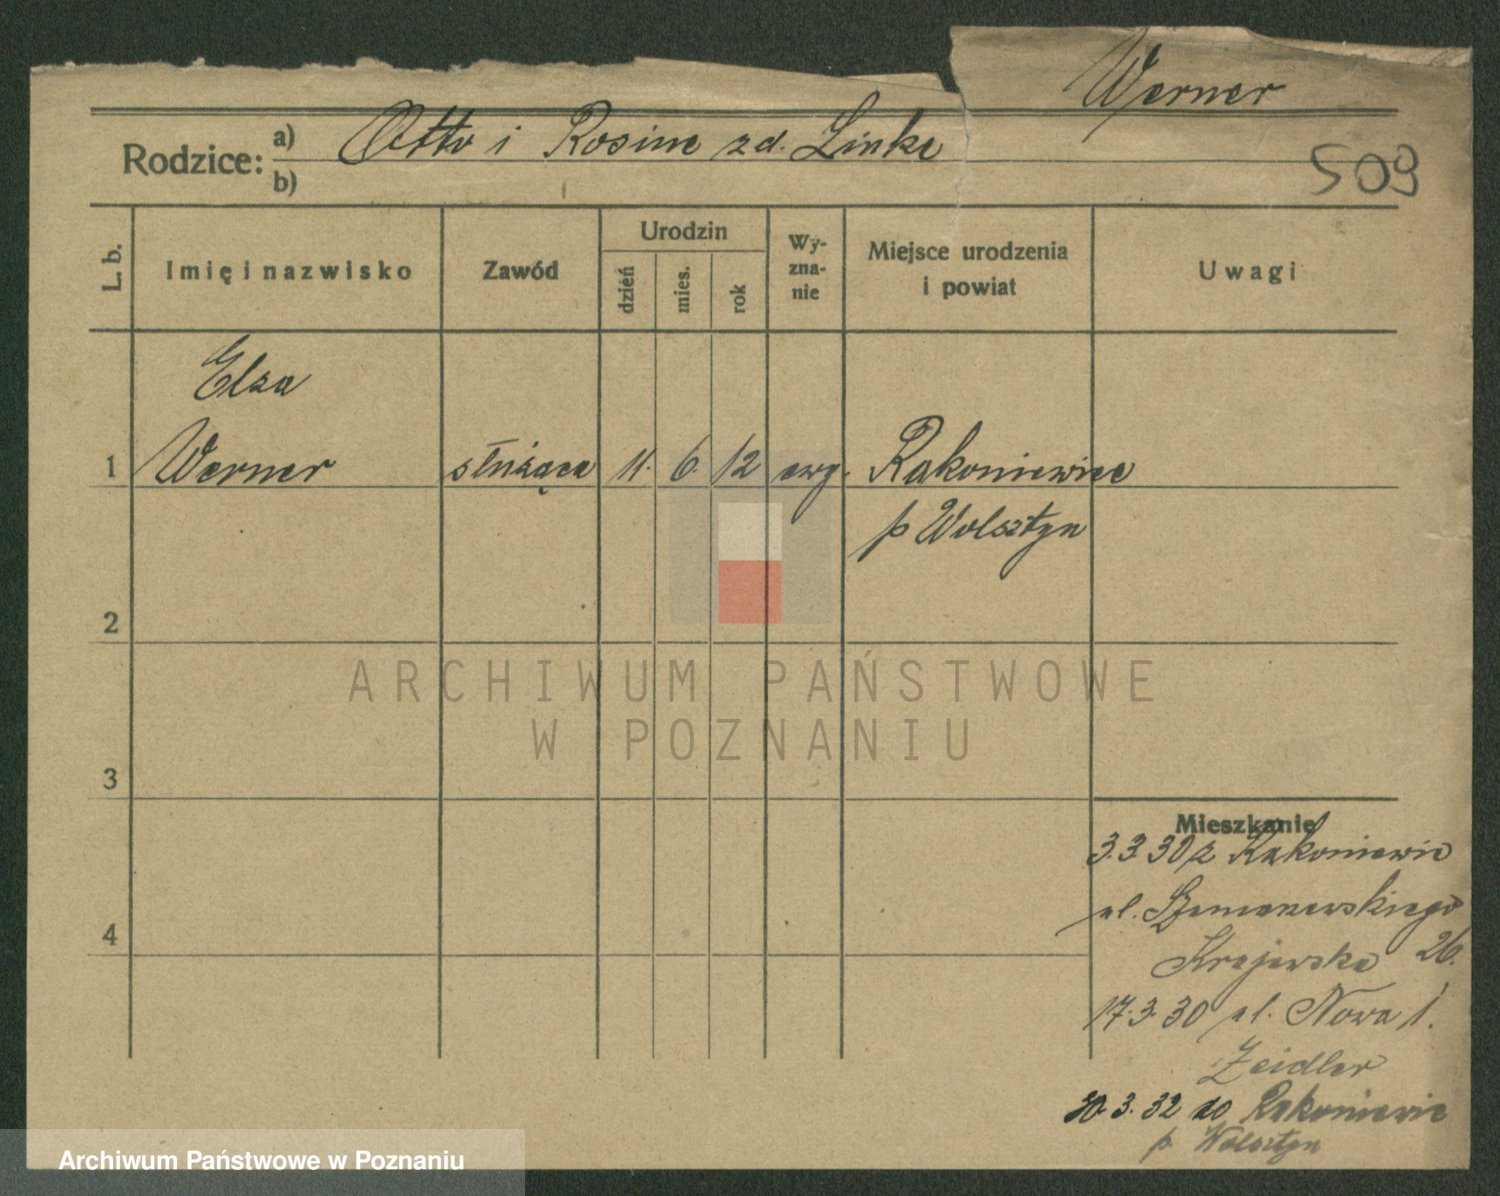 Werner
Rodzice: a) Otto i Rosine zd. Linke
b)
509
L. b.
Imię i nazwisko
Zawód
Urodzin
dzień
mies.
rok
Wy-
zna-
nie
Miejsce urodzenia
i powiat
Uwagi
Elza
1 Werner służąca 11. 6. 12 ewg. Rakoniewice
p Wolsztyn
2
3
4
Mieszkanie
3.3.30 z Rakoniewic
ul. 26.
Krajewska
17.3.30 ul. Nowa 1.
Zeidler
30.3.32 do Rakoniewic
p. Wolsztyn
ARCHIWUM PAŃSTWOWE
W POZNANIU
Archiwum Państwowe w Poznaniu